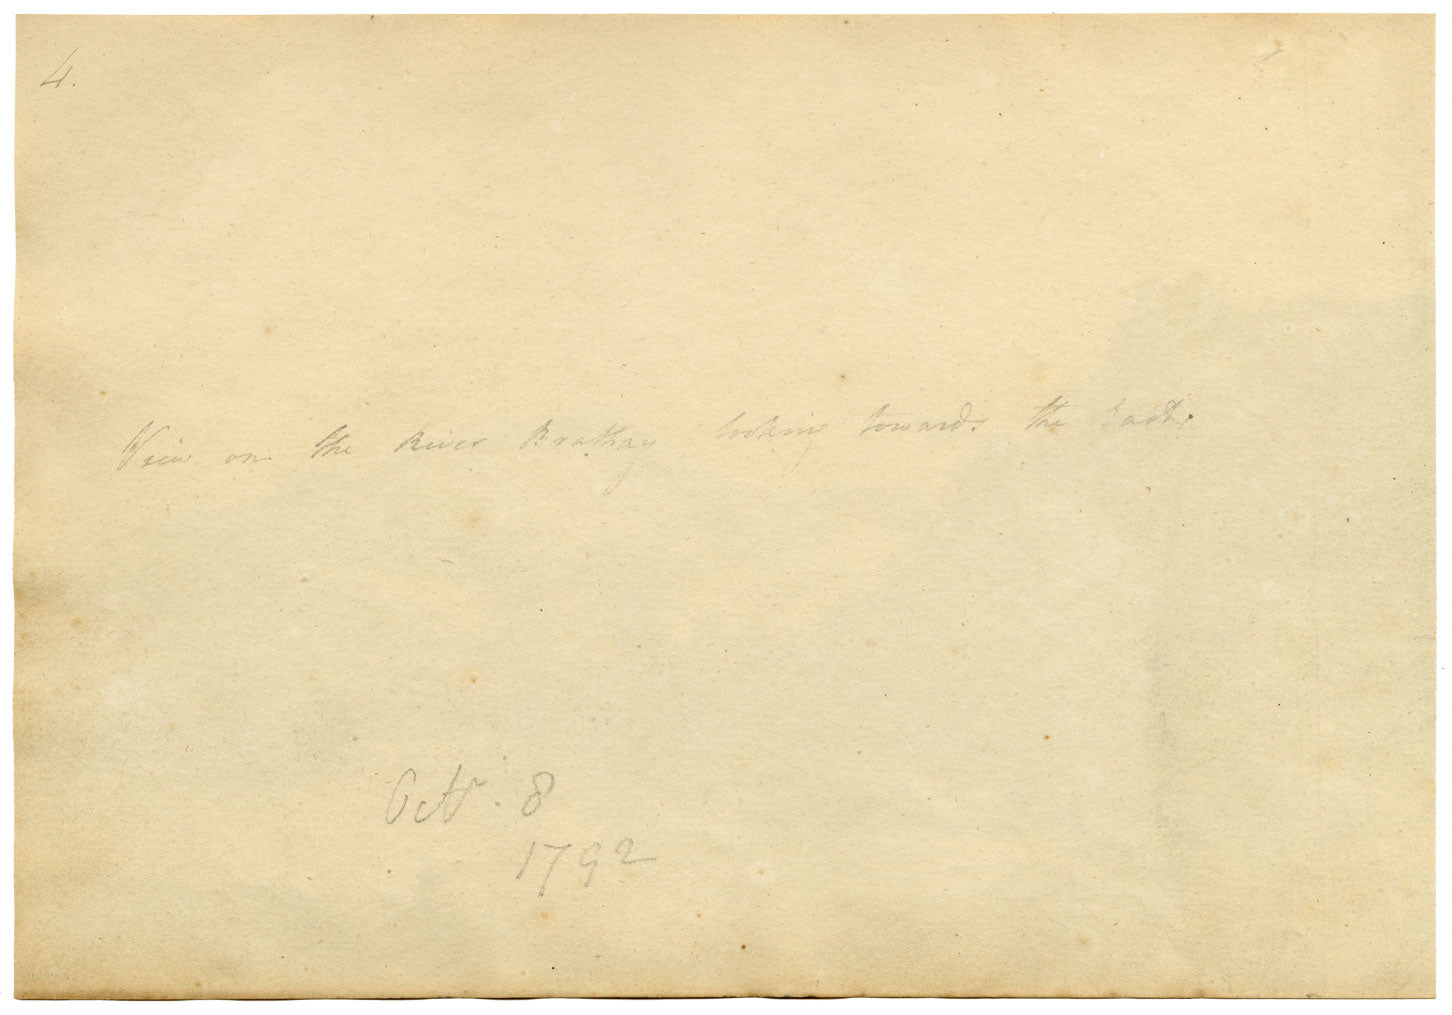 4.
View on the River Brathay looking towards the East.
Octr. 8
1792